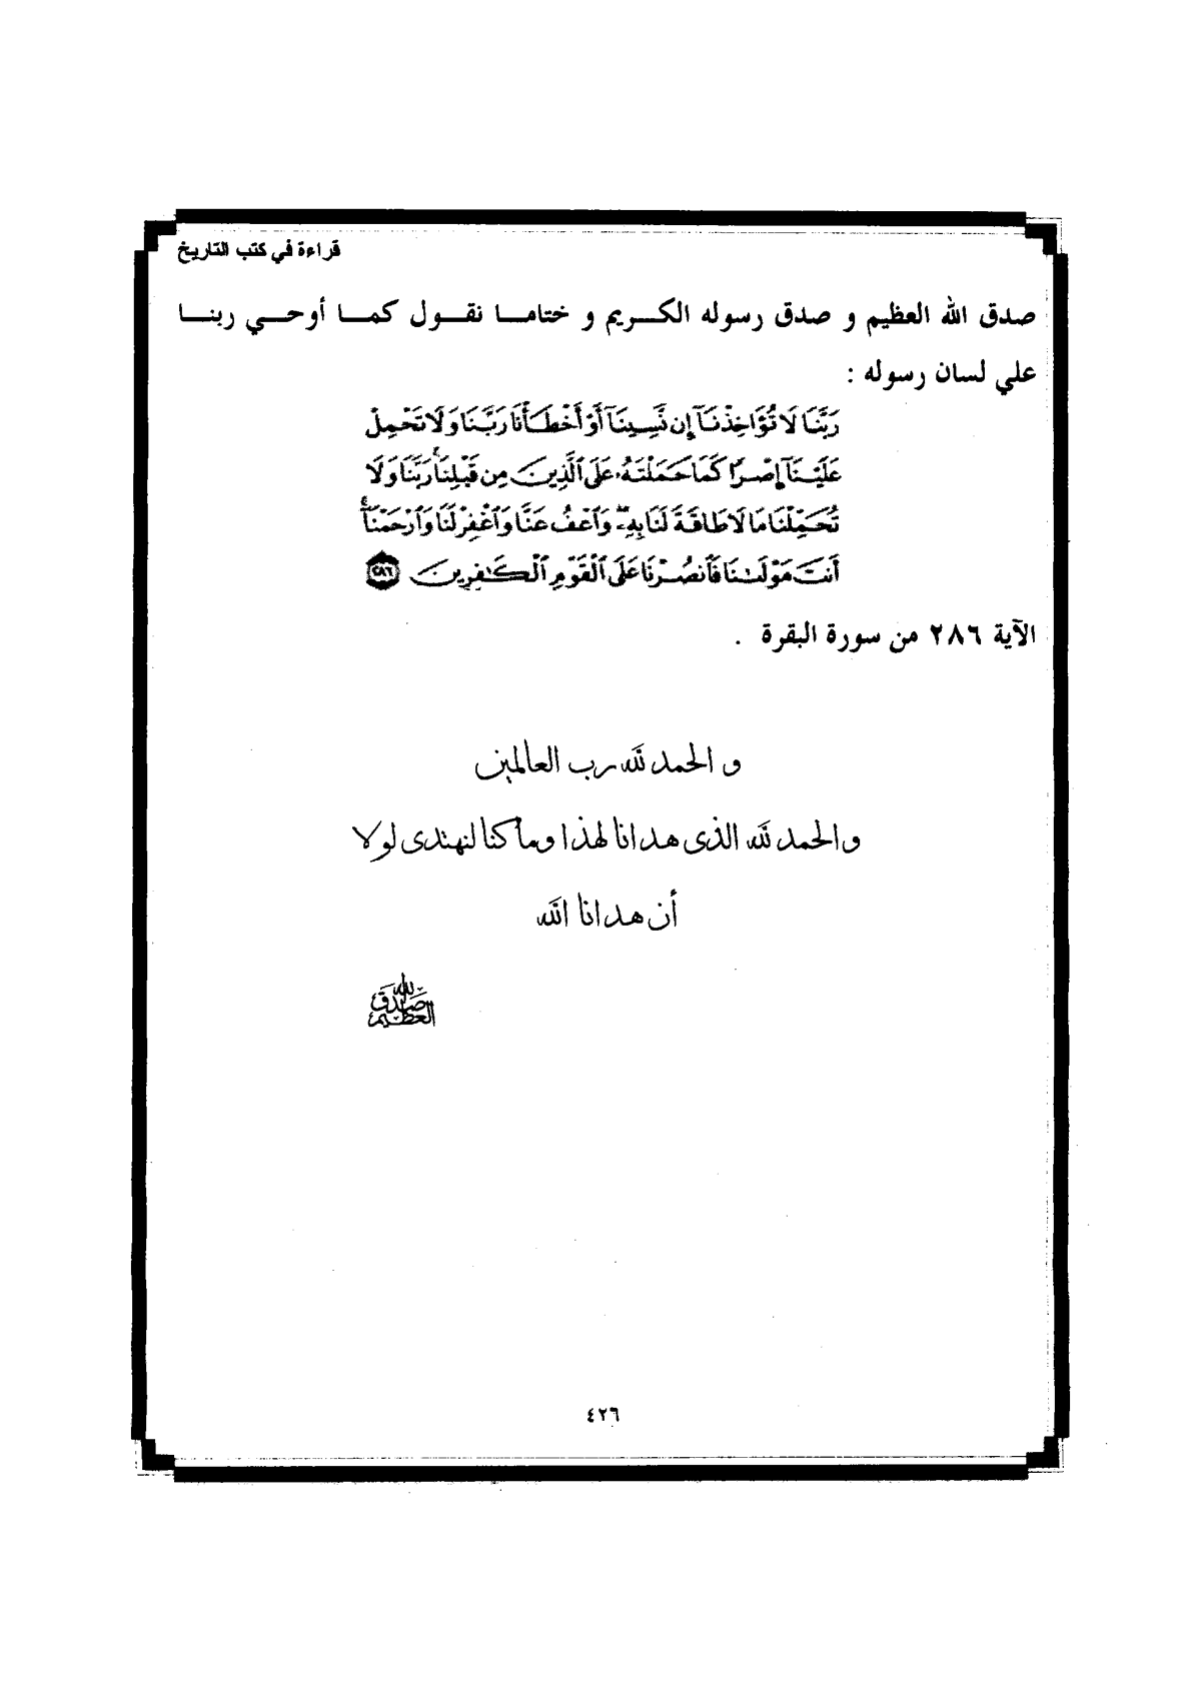 قراءة في كتب التاريخ
صدق الله العظيم و صدق رسوله الكريم و ختاما نقول كما أوحي ربنا
علي لسان رسوله :
رَبَّنَا لَا تُؤَاخِذْنَآ إِن نَّسِينَآ أَوْ أَخْطَأْنَا رَبَّنَا وَلَا تَحْمِلْ
عَلَيْنَآ إِصْرًا كَمَا حَمَلْتَهُۥ عَلَى ٱلَّذِينَ مِن قَبْلِنَا ۚ رَبَّنَا وَلَا
تُحَمِّلْنَا مَا لَا طَاقَةَ لَنَا بِهِۦ ۖ وَٱعْفُ عَنَّا وَٱغْفِرْ لَنَا وَٱرْحَمْنَآ ۚ
أَنتَ مَوْلَىٰنَا فَٱنصُرْنَا عَلَى ٱلْقَوْمِ ٱلْكَٰفِرِينَ ٢٨٦
الآية ٢٨٦ من سورة البقرة .
و الحمد لله رب العالمين
والحمد لله الذى هدانا لهذا وما كنا لنهتدى لولا
أن هدانا الله
صدق الله العظيم
٤٢٦